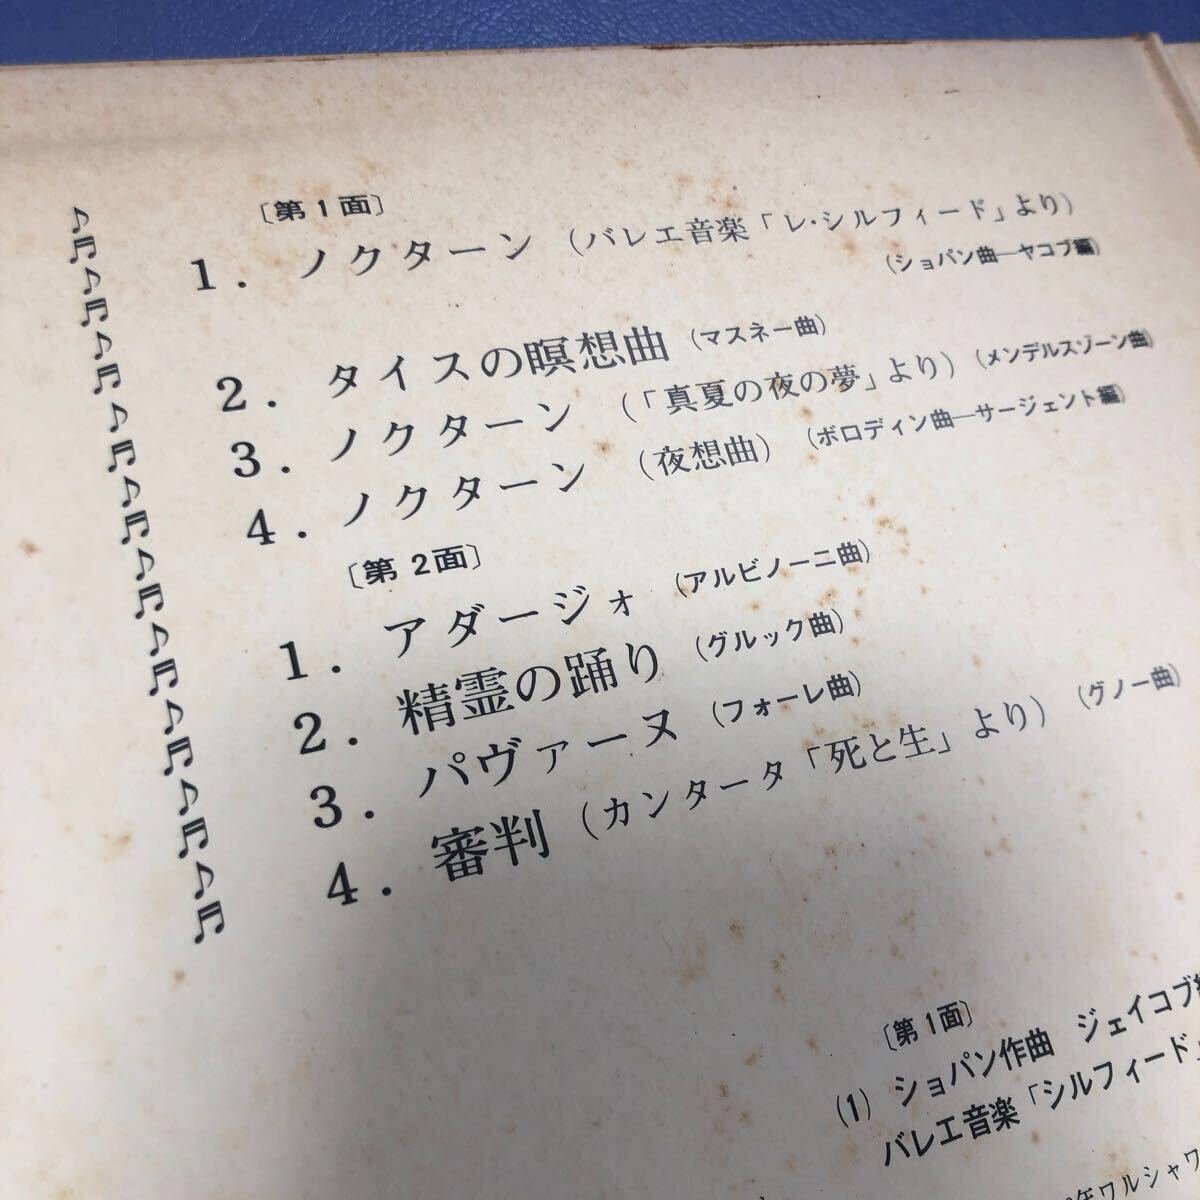 〔第1面〕
1. ノクターン (バレエ音楽「レ・シルフィード」より)
(ショパン曲—ヤコブ編)
2. タイスの瞑想曲 (マスネー曲)
3. ノクターン (「真夏の夜の夢」より) (メンデルスゾーン曲)
4. ノクターン (夜想曲) (ボロディン曲—サージェント編)
〔第2面〕
1. アダージォ (アルビノーニ曲)
2. 精霊の踊り (グルック曲)
3. パヴァーヌ (フォーレ曲)
4. 審判 (カンタータ「死と生」より) (グノー曲)
〔第1面〕
(1) ショパン作曲 ジェイコブ
バレエ音楽「シルフィード」
年ワルシャワ